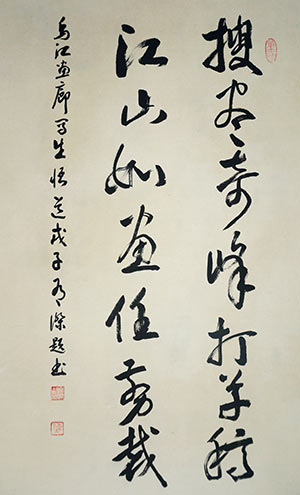 搜尽奇峰打草稿
江山如画任剪裁
乌江画廊写生悟道戊子傑题书